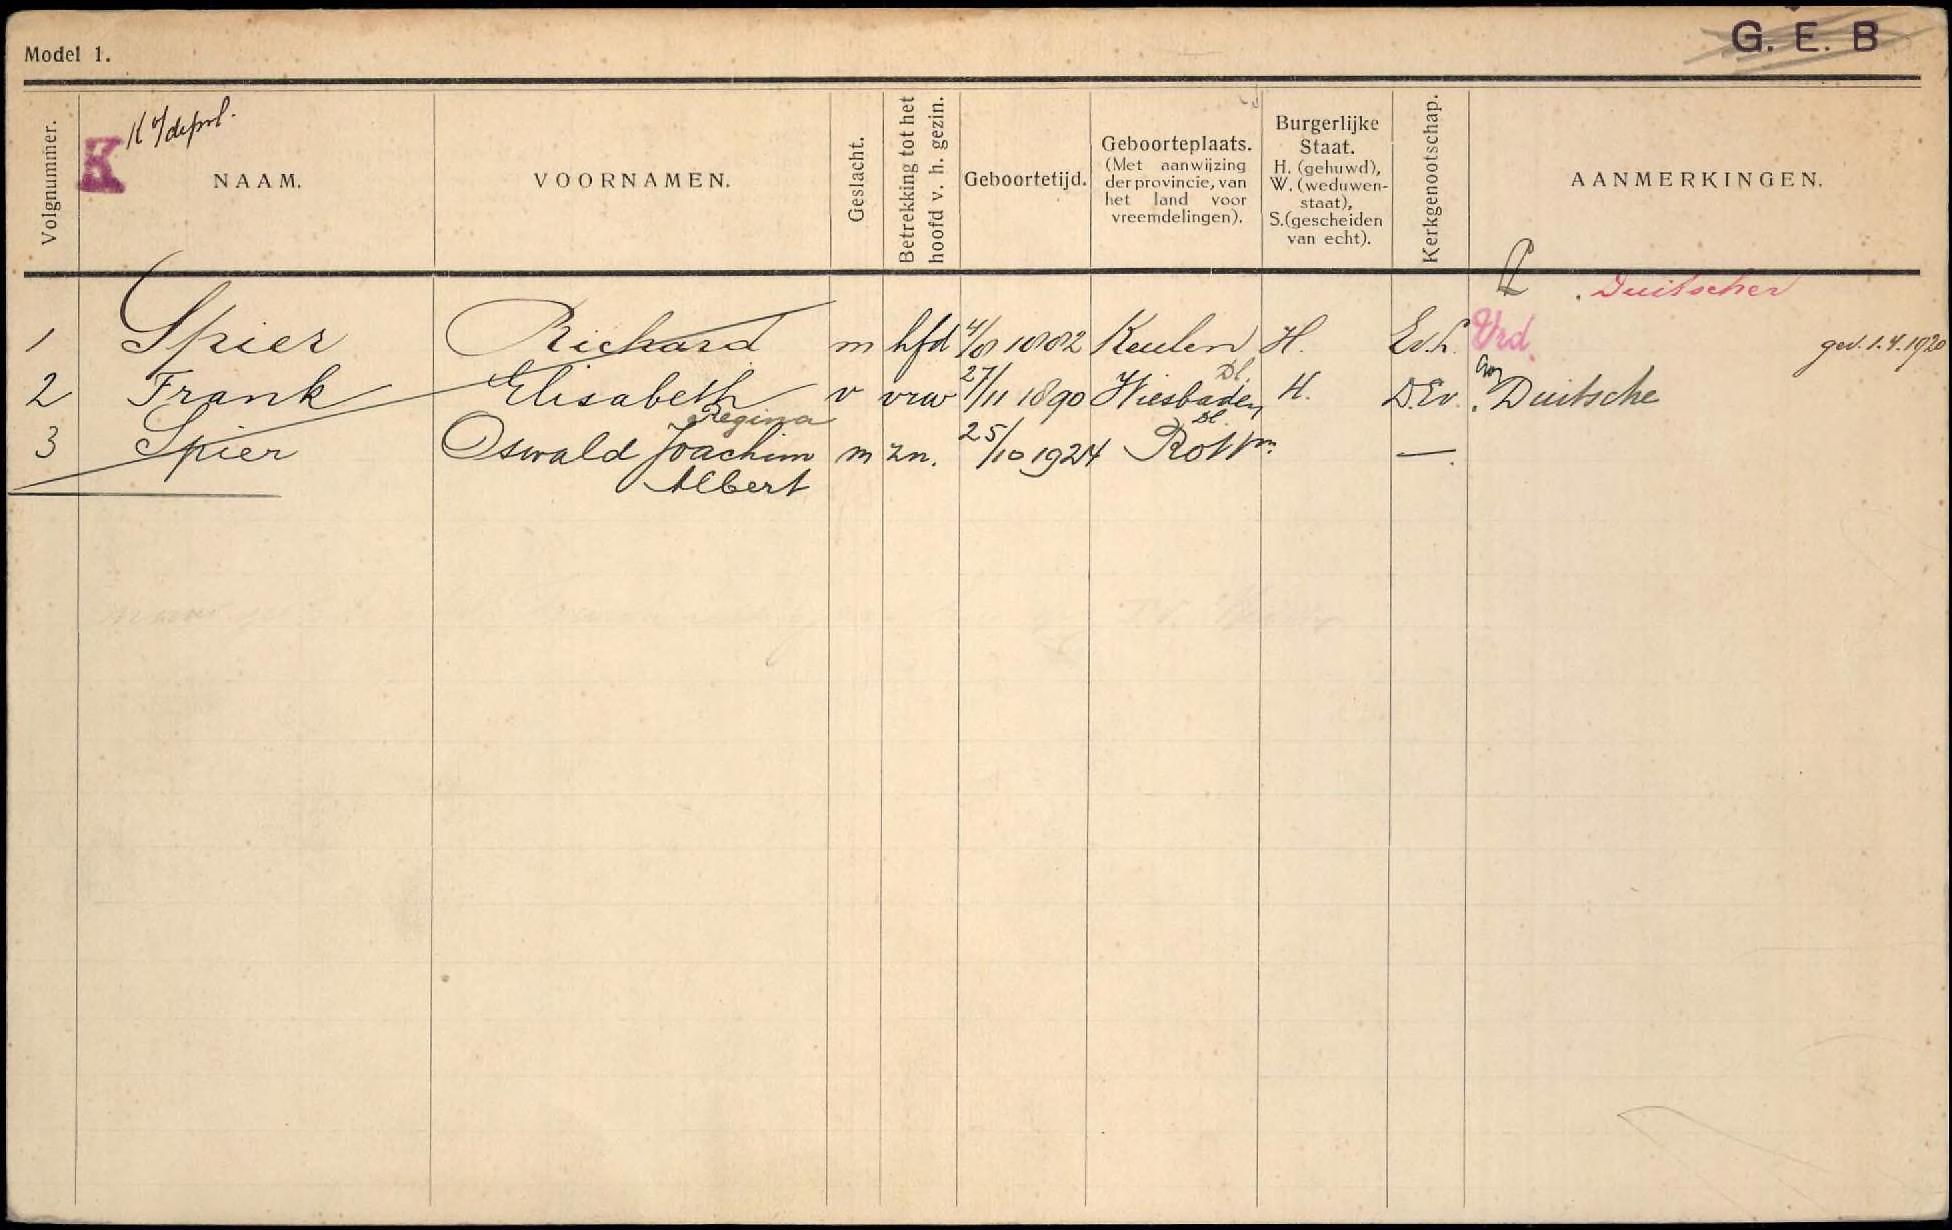 G. E. B
Model 1.
K
Volgnummer.
NAAM.
VOORNAMEN.
Geslacht.
Betrekking tot het
hoofd v. h. gezin.
Geboortetijd.
Geboorteplaats.
(Met aanwijzing
der provincie, van
het land voor
vreemdelingen).
Burgerlijke
Staat.
H. (gehuwd),
W. (weduwen-
staat),
S.(gescheiden
van echt).
Kerkgenootschap.
AANMERKINGEN.
Duitscher
1 Spier Richard m hfd 4/8 1882 Keulen H. Ev. L. Vrd. geh. 1.4.1920
Dl.
2 Frank Elisabeth v vrw 27/11 1890 Wiesbaden H. D.Ev. Duitsche
Regina Dl.
3 Spier Oswald Joachim m zn. 25/10 1924 Rottm. —
Albert